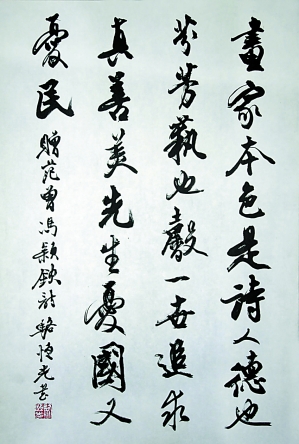 畫家本色是詩人德也
芬芳蓺也馨一世追求
真善美先生憂國又
憂民 贈范曾馮穎欽詩 駱恒光書